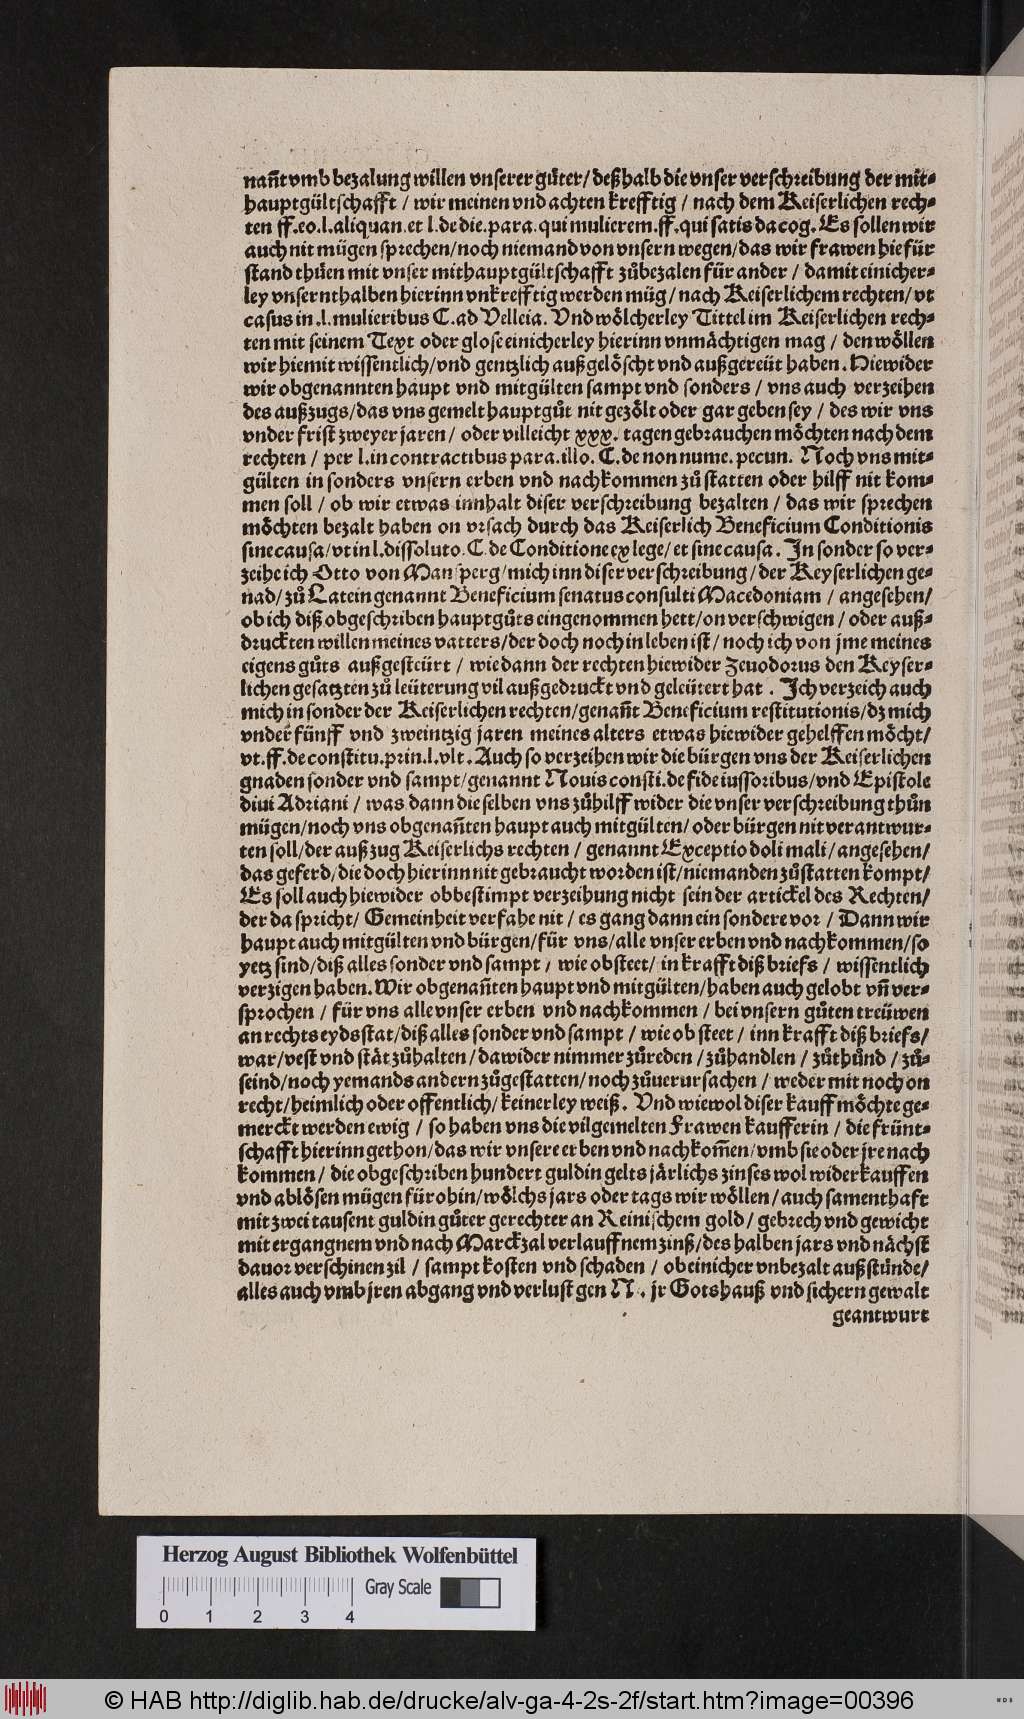 nan̄t vmb bezalung willen vnserer gůter/ deßhalb die vnser verschreibung der mit-
hauptgültschafft / wir meinen vnd achten krefftig / nach dem Keiserlichen rech-
ten ff.eo.l.aliquan.et l.de die.para.qui mulierem.ff.qui satis da cog. Es sollen wir
auch nit mügen sprechen/noch niemand von vnsern wegen/das wir frawen hie für
stand thüen mit vnser mithauptgültschafft zůbezalen für ander / damit einicher-
ley vnsernthalben hierinn vnkrefftig werden müg/ nach Keiserlichem rechten/ vt
casus in .l.mulieribus C.ad Velleia. Vnd wölcherley Tittel im Keiserlichen rech-
ten mit seinem Text oder glose einicherley hierinn vnmächtigen mag / den wöllen
wir hiemit wissentlich/vnd gentzlich außgelöscht vnd außgereüt haben. Hiewider
wir obgenannten haupt vnd mitgülten sampt vnd sonders / vns auch verzeihen
des außzugs/das vns gemelt hauptgůt nit gezölt oder gar geben sey / des wir vns
vnder frist zweyer jaren/ oder villeicht xxx. tagen gebrauchen möchten nach dem
rechten / per l.in contractibus para.illo. C.de non nume. pecun. Noch vns mit-
gülten in sonders vnsern erben vnd nachkommen zů statten oder hilff nit kom-
men soll / ob wir etwas innhalt diser verschreibung bezalten / das wir sprechen
möchten bezalt haben on vrsach durch das Keiserlich Beneficium Conditionis
sine causa/vt in l.dissoluto. C.de Conditione ex lege/ et sine causa. In sonder so ver-
zeihe ich Otto von Mansperg/mich inn diser verschreibung/der Keyserlichen ge-
nad/zů Latein genannt Beneficium senatusconsulti Macedoniam / angesehen/
ob ich diß obgeschriben hauptgůts eingenommen hett/on verschwigen / oder auß-
druckten willen meines vatters/der doch noch in leben ist/noch ich von jme meines
eigens gůts außgesteürt / wie dann der rechten hiewider Zeuodorus den Keyser-
lichen gesatzten zů leüterung vil außgedruckt vnd geleütert hat . Ich verzeich auch
mich in sonder der Keiserlichen rechten/genan̄t Beneficium restitutionis/dz mich
vnder fünff vnd zweintzig jaren meines alters etwas hiewider gehelffen möcht/
vt.ff.de constitu.prin.l.vlt. Auch so verzeihen wir die bürgen vns der Keiserlichen
gnaden sonder vnd sampt/genannt Nouis consti.de fideiussoribus/vnd Epistole
diui Adriani / was dann die selben vns zůhilff wider die vnser verschreibung thůn
mügen/noch vns obgenan̄ten haupt auch mitgülten/ oder bürgen nit verantwur-
ten soll/der außzug Keiserlichs rechten / genannt Exceptio doli mali/angesehen/
das geferd/die doch hierinn nit gebraucht worden ist/niemanden zůstatten kompt/
Es soll auch hiewider obbestimpt verzeihung nicht sein der artickel des Rechten/
der da spricht/ Gemeinheit verfahe nit / es gang dann ein sondere vor / Dann wir
haupt auch mitgülten vnd bürgen/für vns/alle vnser erben vnd nachkommen/so
yetz sind/diß alles sonder vnd sampt / wie obsteet/ in krafft diß briefs / wissentlich
verzigen haben. Wir obgenan̄ten haupt vnd mitgülten/haben auch gelobt vn̄ ver-
sprochen / für vns alle vnser erben vnd nachkommen / bei vnsern gůten treüwen
an rechts eydsstat/diß alles sonder vnd sampt / wie ob steet / inn krafft diß briefs/
war/vest vnd stät zůhalten/dawider nimmer zůreden/zůhandlen / zůthůnd / zů-
seind/noch yemands andern zůgestatten/noch zůuerursachen / weder mit noch on
recht/heimlich oder offentlich/keinerley weiß. Vnd wiewol diser kauff möchte ge-
merckt werden ewig / so haben vns die vilgemelten Frawen kaufferin / die frünt-
schafft hierinn gethon/das wir vnsere erben vnd nachkom̄en/vmb sie oder jre nach
kommen / die obgeschriben hundert guldin gelts järlichs zinses wol widerkauffen
vnd ablösen mügen fürohin/wölchs jars oder tags wir wöllen/auch samenthaft
mit zwei tausent guldin gůter gerechter an Reinischem gold/ gebrech vnd gewicht
mit ergangnem vnd nach Marckzal verlauffnem zinß/des halben jars vnd nächst
dauor verschinen zil / sampt kosten vnd schaden / ob einicher vnbezalt außstünde/
alles auch vmb jren abgang vnd verlust gen N. jr Gotshauß vnd sichern gewalt
geantwurt
Herzog August Bibliothek Wolfenbüttel
Gray Scale
0 1 2 3 4
© HAB http://diglib.hab.de/drucke/alv-ga-4-2s-2f/start.htm?image=00396